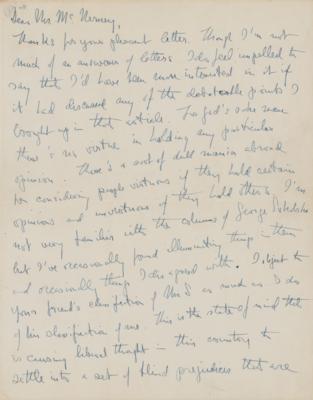 Dear Mr. McNerney,
Thanks for your pleasant letter. Though I'm not
much of an answerer of letters I do feel impelled to
say that I'd have been more interested in it if
it had discussed any of the debateable points I
brought up in that article. For god's sake man
there's no virtue in holding any particular
opinion. There's a sort of dull mania abroad
for considering people virtuous if they hold certain
opinions and unvirtuous if they hold others. I'm
not very familiar with the columns of George Sokolsky
but I've occasionally found illuminating things in them
and occasionally things I disagreed with. I object to
your friend's classification of as much as I do
of his classification of me. This is the state of mind that
is causing liberal thought in this country to
settle into a set of blind prejudices that are